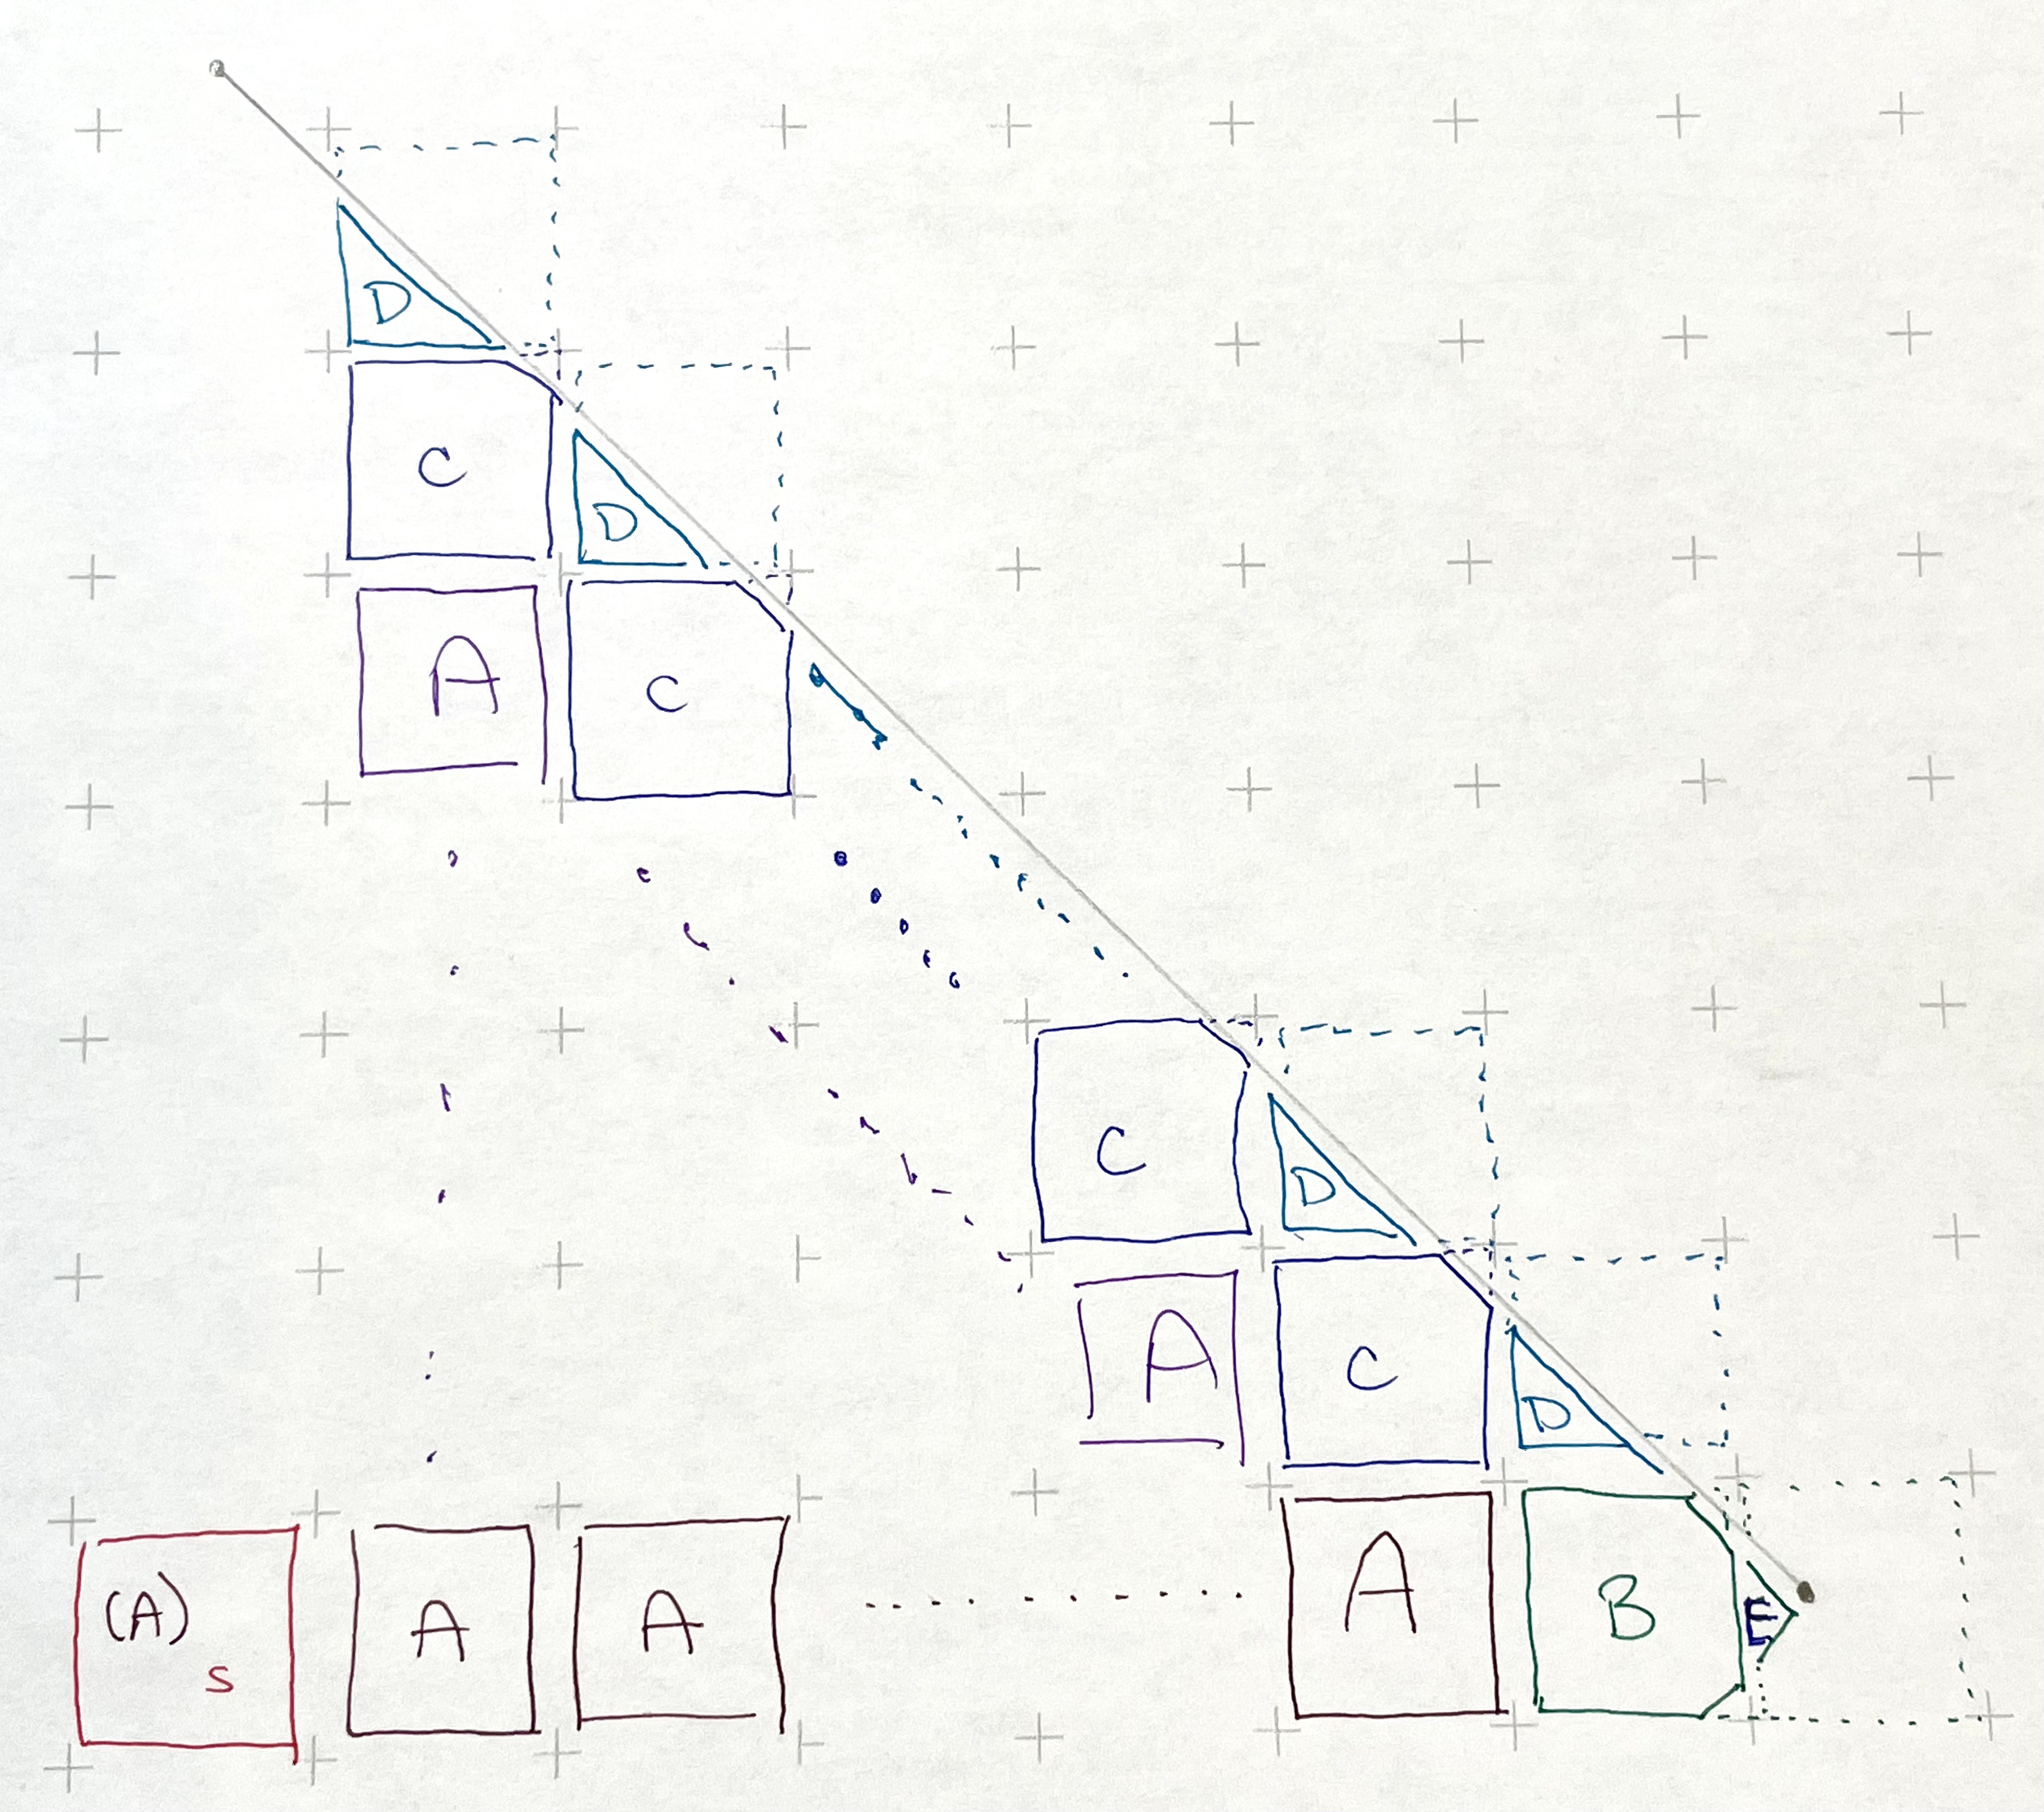 D
C
D
A
C
C
D
A
C
D
(A)
S
A
A
A
B
E